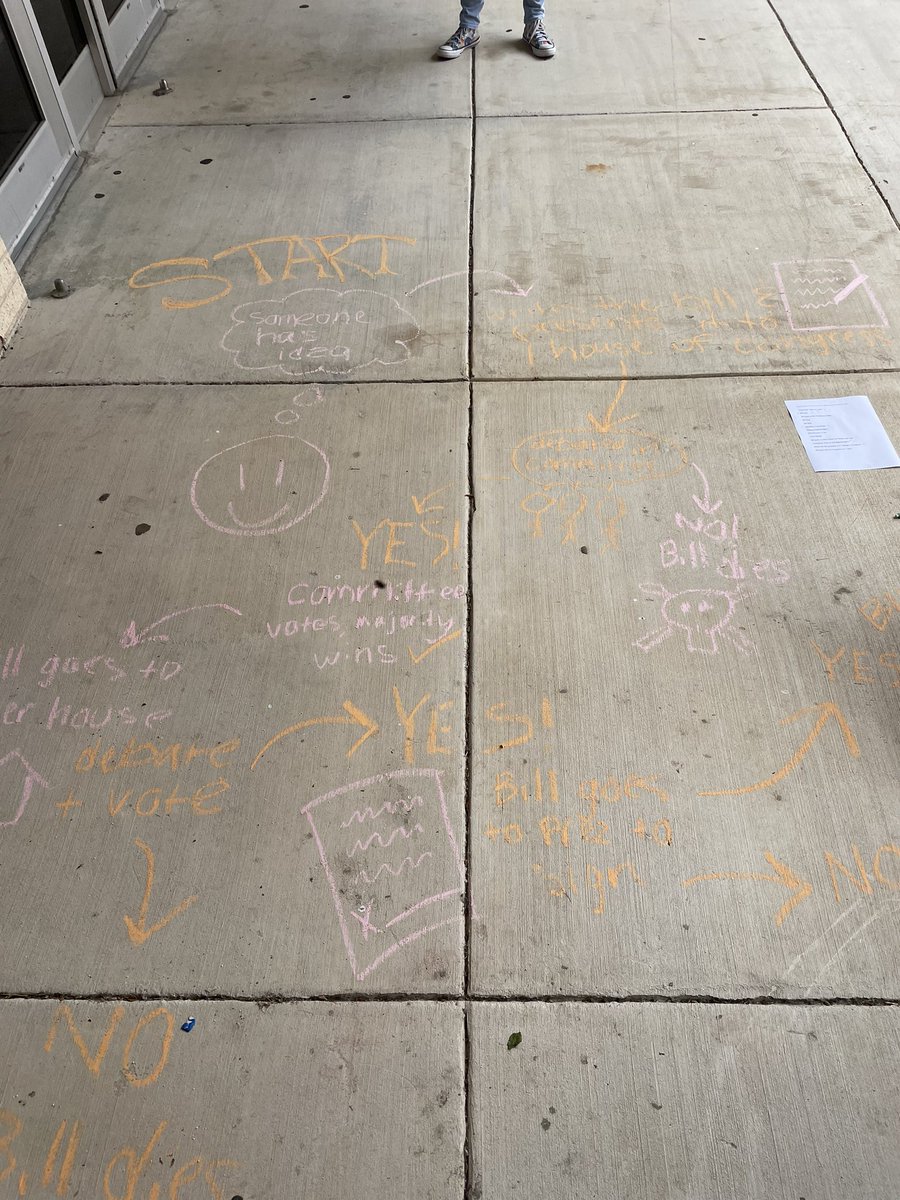 START
someone
has
idea
bill &
presents it to
house of congress
debated in
committee
YES!
NO!
Bill dies
Committee
votes, majority
wins
ll goes to
er house
debate
+ vote
YES!
Bill goes
to Prez to
sign
YES
NO
NO
Bill dies